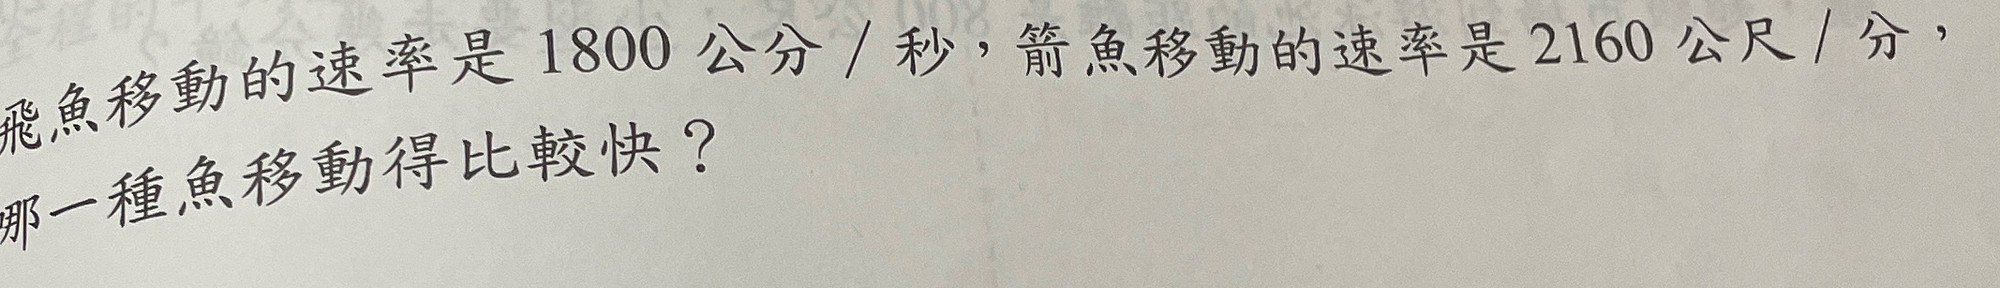 飛魚移動的速率是 1800 公分 / 秒，箭魚移動的速率是 2160 公尺 / 分，
哪一種魚移動得比較快？